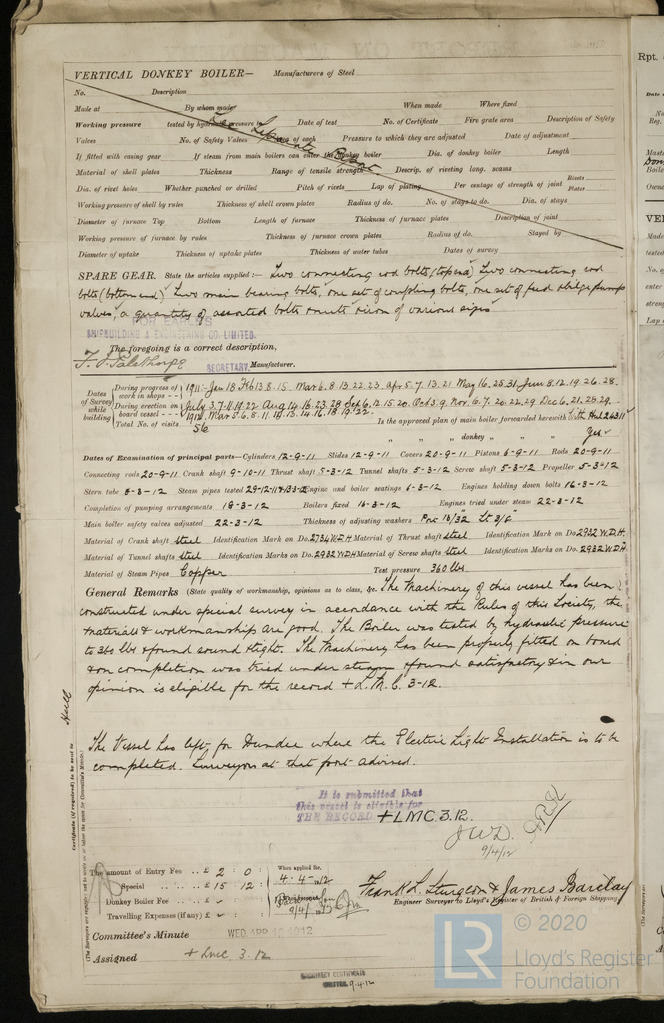 VERTICAL DONKEY BOILER— Manufacturers of Steel
No. Description
Made at By whom made When made Where fixed
Working pressure tested by hydraulic pressure to Date of test No. of Certificate Fire grate area Description of Safety
Valves No. of Safety Valves Area of each Pressure to which they are adjusted Date of adjustment
If fitted with easing gear If steam from main boilers can enter the donkey boiler Dia. of donkey boiler Length
Material of shell plates Thickness Range of tensile strength Descrip. of riveting long. seams
Dia. of rivet holes Whether punched or drilled Pitch of rivets Lap of plating Per centage of strength of joint Rivets Plates
Working pressure of shell by rules Thickness of shell crown plates Radius of do. No. of stays to do. Dia. of stays
Diameter of furnace Top Bottom Length of furnace Thickness of furnace plates Description of joint
Working pressure of furnace by rules Thickness of furnace crown plates Radius of do. Stayed by
Diameter of uptake Thickness of uptake plates Thickness of water tubes Dates of survey
See Separate Report
SPARE GEAR. State the articles supplied:— Two connecting rod bolts (top end) Two connecting rod
bolts (bottom end) Two main bearing bolts, one set of coupling bolts, one set of feed & bilge pump
valves, a quantity of assorted bolts & nuts & iron of various sizes
SHIPBUILDING & ENGINEERING CO. LIMITED.
The foregoing is a correct description,
SECRETARY. Manufacturer.
Dates of Survey while building
During progress of work in shops - - 1911:- Jan 18 Feb 13. 8. 15 Mar 2. 8. 13. 22. 23 Apr 5. 7. 13. 21 May 16. 25. 31 Jun 8. 12. 19. 26. 28.
During erection on board vessel - - July 3. 7. 11. 18. 22 Aug 14. 16. 23. 28 Sep 6. 12. 15. 20. Oct 3. 9. Nov. 6. 7. 20. 22. 29 Dec 6. 21. 25. 29.
1912. Mar 5. 6. 8. 11. 13. 14. 16. 18. 19. 22.
Total No. of visits 56 Is the approved plan of main boiler forwarded herewith
" " " donkey " " " Yes
Dates of Examination of principal parts—Cylinders 12-9-11 Slides 12-9-11 Covers 20-9-11 Pistons 6-9-11 Rods 20-9-11
Connecting rods 20-9-11 Crank shaft 9-10-11 Thrust shaft 5-3-12 Tunnel shafts 5-3-12 Screw shaft 5-3-12 Propeller 5-3-12
Stern tube 5-3-12 Steam pipes tested 29-12-11 & 13-3-12 Engine and boiler seatings 6-3-12 Engines holding down bolts 16-3-12
Completion of pumping arrangements 19-3-12 Boilers fixed 16-3-12 Engines tried under steam 22-3-12
Main boiler safety valves adjusted 22-3-12 Thickness of adjusting washers
Material of Crank shaft Steel Identification Mark on Do. 2734 W.D.H. Material of Thrust shaft Steel Identification Mark on Do. 2932 W.D.H.
Material of Tunnel shafts Steel Identification Marks on Do. 2932 W.D.H. Material of Screw shafts Steel Identification Marks on Do. 2932 W.D.H.
Material of Steam Pipes Copper Test pressure 360 lbs
General Remarks (State quality of workmanship, opinions as to class, &c. The Machinery of this vessel has been
constructed under special survey in accordance with the Rules of this Society, the
material & workmanship are good. The Boiler was tested by hydraulic pressure
to 360 lbs & found sound & tight. The Machinery has been properly fitted on board
& on completion was tried under steam & found satisfactory & in our
opinion is eligible for the record + L.M.C. 3-12.
The Vessel has left for Dundee where the Electric Light Installation is to be
completed. Surveyors at that port advised.
It is submitted that
this vessel is eligible for
THE RECORD + LMC. 3.12.
9/4/12
Hull
Certificate (if required) to be sent to
The amount of Entry Fee .. £ 2 : 0 : When applied for,
Special .. £ 15 : 12 : 4-4-1912
Donkey Boiler Fee .. £
Travelling Expenses (if any) £ 9/4/12
Frank L. Sturgeon & James Barclay
Engineer Surveyor to Lloyd's Register of British & Foreign Shipping
Committee's Minute WED. APR 10 1912
Assigned + LMC 3.12
MACHINERY CERTIFICATE
WRITTEN. 9.4.12
© 2020
LR
Lloyd's Register
Foundation
Rpt.